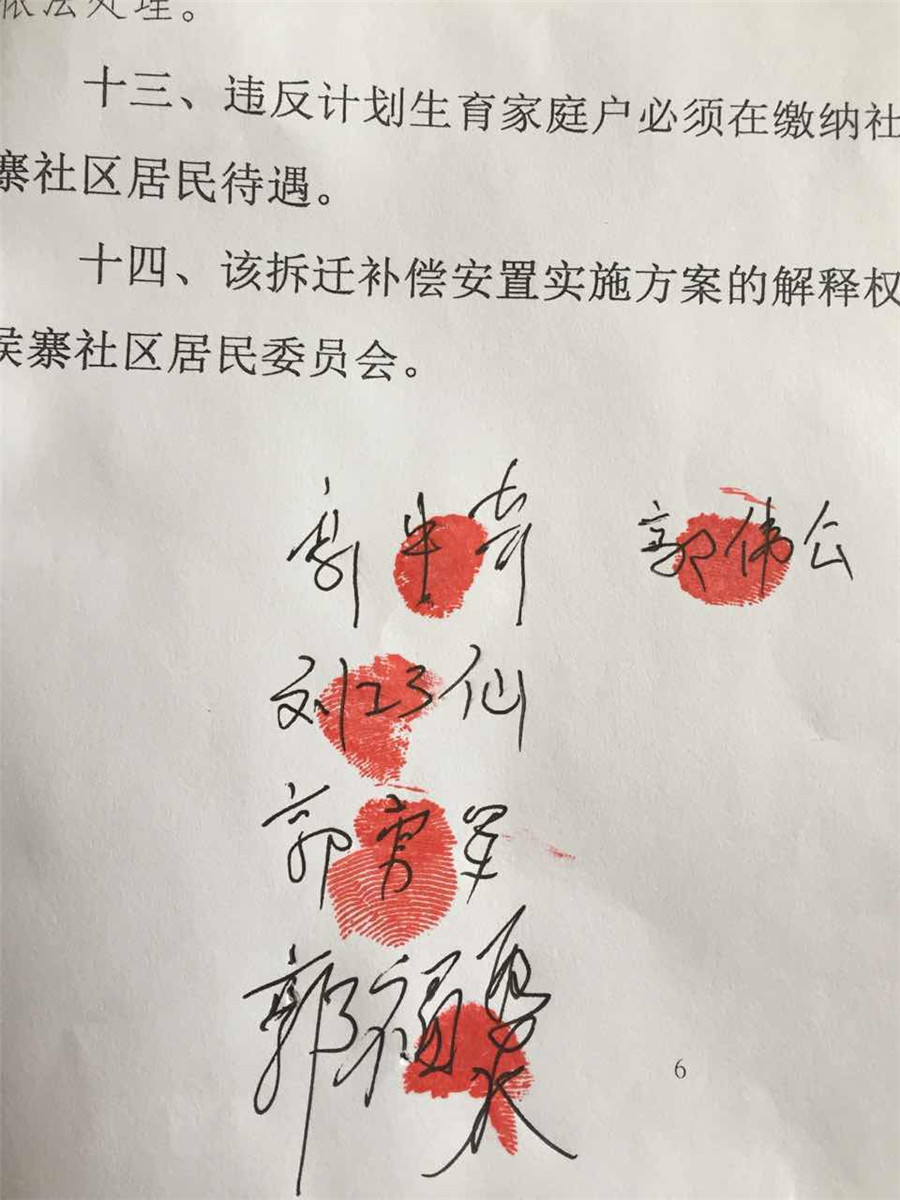 依法处理。
十三、违反计划生育家庭户必须在缴纳社
寨社区居民待遇。
十四、该拆迁补偿安置实施方案的解释权
侯寨社区居民委员会。
郭 郭伟公
刘巧仙
郭军
郭福
6